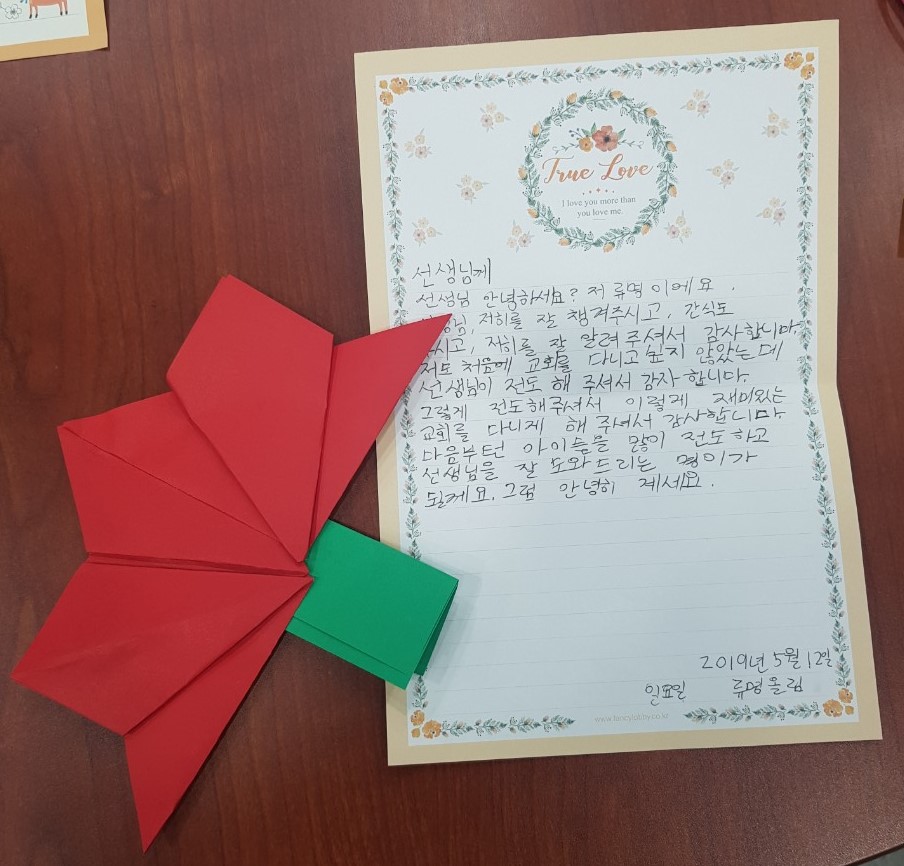 True Love
I love you more than
you love me.
선생님께
선생님 안녕하세요? 저 류명 이에요.
저희를 잘 챙겨주시고, 간식도
저희를 잘 알려주셔서 감사합니다.
저도 처음에 교회를 다니고 싶지 않았는데
선생님이 전도 해 주셔서 감사 합니다.
그렇게 전도해주셔서 이렇게 재미있는
교회를 다니게 해 주셔서 감사합니다
다음부턴 아이들을 많이 전도하고
선생님을 잘 도와드리는 명이가
될께요. 그럼 안녕히 계세요.
2019년 5월 12일
일요일 류명올림